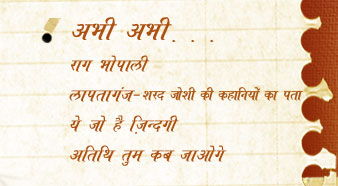 अभी अभी. . .
राग भोपाली
लापतागंज-शरद जोशी की कहानियों का पता
ये जो है ज़िन्दगी
अतिथि तुम कब जाओगे